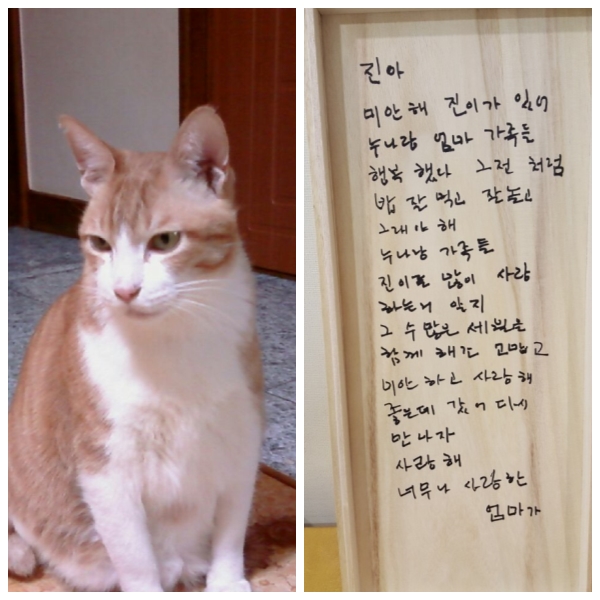 진아
미안해 진이가 있어
누나랑 엄마 가족들
행복 했다 그전 처럼
밥 잘 먹고 잘놀고
그래야 해
누나낭 가족들
진이로 많이 사랑
하는거 알지
그 수 많은 세월을
함께 해준 고맙고
미안 하고 사랑해
좋은데 갔어 다시
만나자
사랑해
너무나 사랑한
엄마가